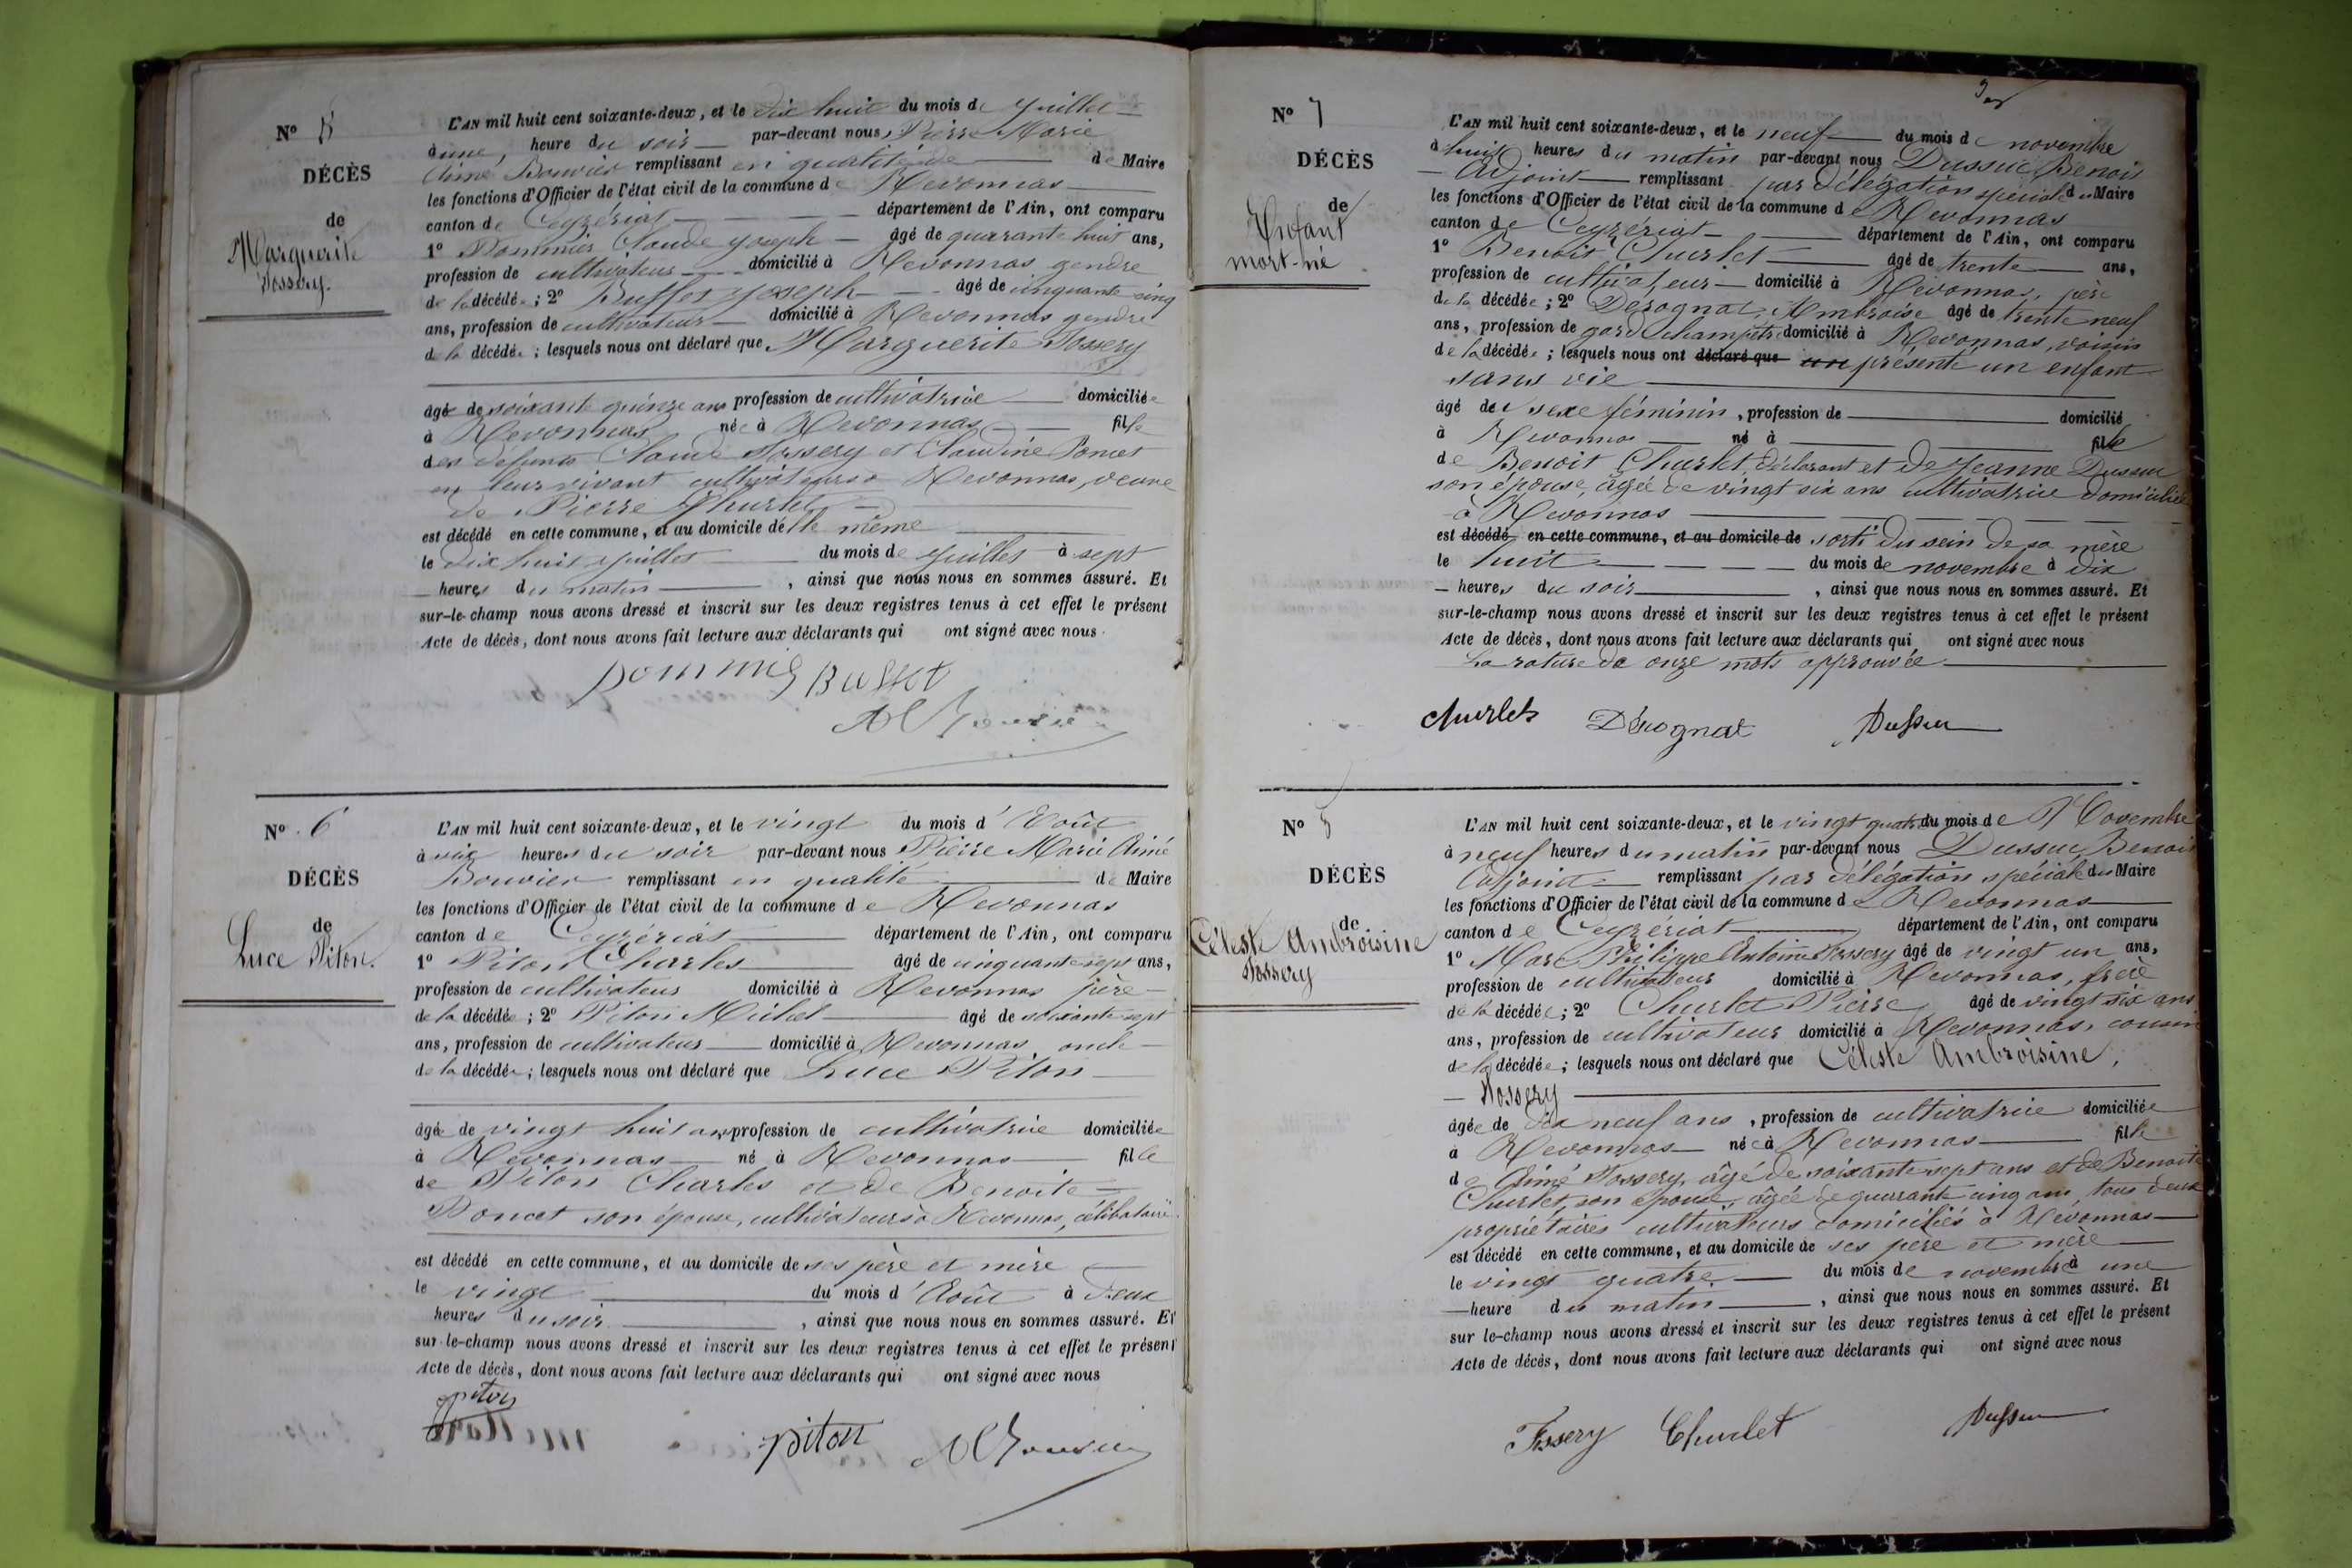 Nº 5
DÉCÈS
de
Marguerite
Fossery.
L'AN mil huit cent soixante-deux, et le dix huit du mois de juillet
à une, heure du soir par-devant nous, Pierre Marie
Aimé Bouvier remplissant en qualité de de Maire
les fonctions d'Officier de l'état civil de la commune de Revonnas
canton de Ceyzériat département de l'Ain, ont comparu
1º Pommier Claude Joseph âgé de quarante huit ans,
profession de cultivateur domicilié à Revonnas gendre
de la décédée; 2º Buffet Joseph âgé de cinquante cinq
ans, profession de cultivateur domicilié à Revonnas gendre
de la décédée; lesquels nous ont déclaré que Marguerite Fossery
âgée de soixante quinze ans profession de cultivatrice domiciliée
à Revonnas née à Revonnas fille
des défunts Claude Fossery et Claudine Poncet
en leur vivant cultivateurs à Revonnas, veuve
de Pierre Churlet
est décédé en cette commune, et au domicile d'elle même
le dix huit juillet du mois de juillet à sept
heures du matin, ainsi que nous nous en sommes assuré. Et
sur-le-champ nous avons dressé et inscrit sur les deux registres tenus à cet effet le présent
Acte de décès, dont nous avons fait lecture aux déclarants qui ont signé avec nous.
Pommié Buffet
A Bouvier
Nº 6
DÉCÈS
de
Luce Piton.
L'AN mil huit cent soixante-deux, et le vingt du mois d'Août
à six heures du soir par-devant nous Pierre Marie Aimé
Bouvier remplissant en qualité de Maire
les fonctions d'Officier de l'état civil de la commune de Revonnas
canton de Ceyzériat département de l'Ain, ont comparu
1º Piton Charles âgé de cinquante sept ans,
profession de cultivateur domicilié à Revonnas père
de la décédée; 2º Piton Michel âgé de soixante sept
ans, profession de cultivateur domicilié à Revonnas oncle
de la décédée; lesquels nous ont déclaré que Luce Piton
âgée de vingt huit ans profession de cultivatrice domiciliée
à Revonnas né à Revonnas fille
de Piton Charles et de Benoite
Poncet son épouse, cultivateurs à Revonnas, célibataire.
est décédé en cette commune, et au domicile de ses père et mère
le vingt du mois d'Août à deux
heures du soir, ainsi que nous nous en sommes assuré. Et
sur-le-champ nous avons dressé et inscrit sur les deux registres tenus à cet effet le présent
Acte de décès, dont nous avons fait lecture aux déclarants qui ont signé avec nous
piton
piton A Bouvier
Nº 7
DÉCÈS
de
Enfant
mort-né
L'AN mil huit cent soixante-deux, et le neuf du mois de novembre
à huit heures du matin par-devant nous Dussuc Benoit
Adjoint remplissant par délégation spéciale du Maire
les fonctions d'Officier de l'état civil de la commune de Revonnas
canton de Ceyzériat département de l'Ain, ont comparu
1º Benoit Churlet âgé de trente ans,
profession de cultivateur domicilié à Revonnas, père
de la décédée; 2º Désognat Ambroise âgé de trente neuf
ans, profession de garde champêtre domicilié à Revonnas, voisin
de la décédée; lesquels nous ont déclaré que un présenté un enfant
sans vie
âgé de u sexe féminin, profession de domicilié
à Revonnas né à fille
de Benoit Churlet, déclarant et de Jeanne Dussuc
son épouse, âgée de vingt six ans cultivatrice domiciliée
à Revonnas
est décédé en cette commune, et au domicile de sorti du sein de sa mère
le huit du mois de novembre à dix
heures du soir, ainsi que nous nous en sommes assuré. Et
sur-le-champ nous avons dressé et inscrit sur les deux registres tenus à cet effet le présent
Acte de décès, dont nous avons fait lecture aux déclarants qui ont signé avec nous
La rature de onze mots approuvée
Churlet Désognat Dussuc
Nº 8
DÉCÈS
de
Céleste Ambroisine
Fossery
L'AN mil huit cent soixante-deux, et le vingt quatre du mois de Novembre
à neuf heures du matin par-devant nous Dussuc Benoit
Adjoint remplissant par délégation spéciale du Maire
les fonctions d'Officier de l'état civil de la commune de Revonnas
canton de Ceyzériat département de l'Ain, ont comparu
1º Marc Philippe Antoine Fossery âgé de vingt un ans,
profession de cultivateur domicilié à Revonnas, frère
de la décédée; 2º Churlet Pierre âgé de vingt six ans
ans, profession de cultivateur domicilié à Revonnas, cousin
de la décédée; lesquels nous ont déclaré que Céleste Ambroisine,
Fossery
âgée de dix neuf ans, profession de cultivatrice domiciliée
à Revonnas née à Revonnas fille
de Aimé Fossery, âgé de soixante sept ans et de Benoite
Churlet, son épouse, âgée de quarante cinq ans, tous deux
propriétaires cultivateurs domiciliés à Revonnas
est décédé en cette commune, et au domicile de ses père et mère
le vingt quatre du mois de novembre à une
heure du matin, ainsi que nous nous en sommes assuré. Et
sur le-champ nous avons dressé et inscrit sur les deux registres tenus à cet effet le présent
Acte de décès, dont nous avons fait lecture aux déclarants qui ont signé avec nous
Fossery Churlet Dussuc